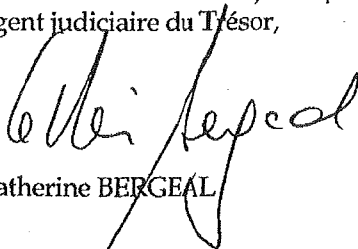 gent judiciaire du Trésor,
atherine BERGEAL